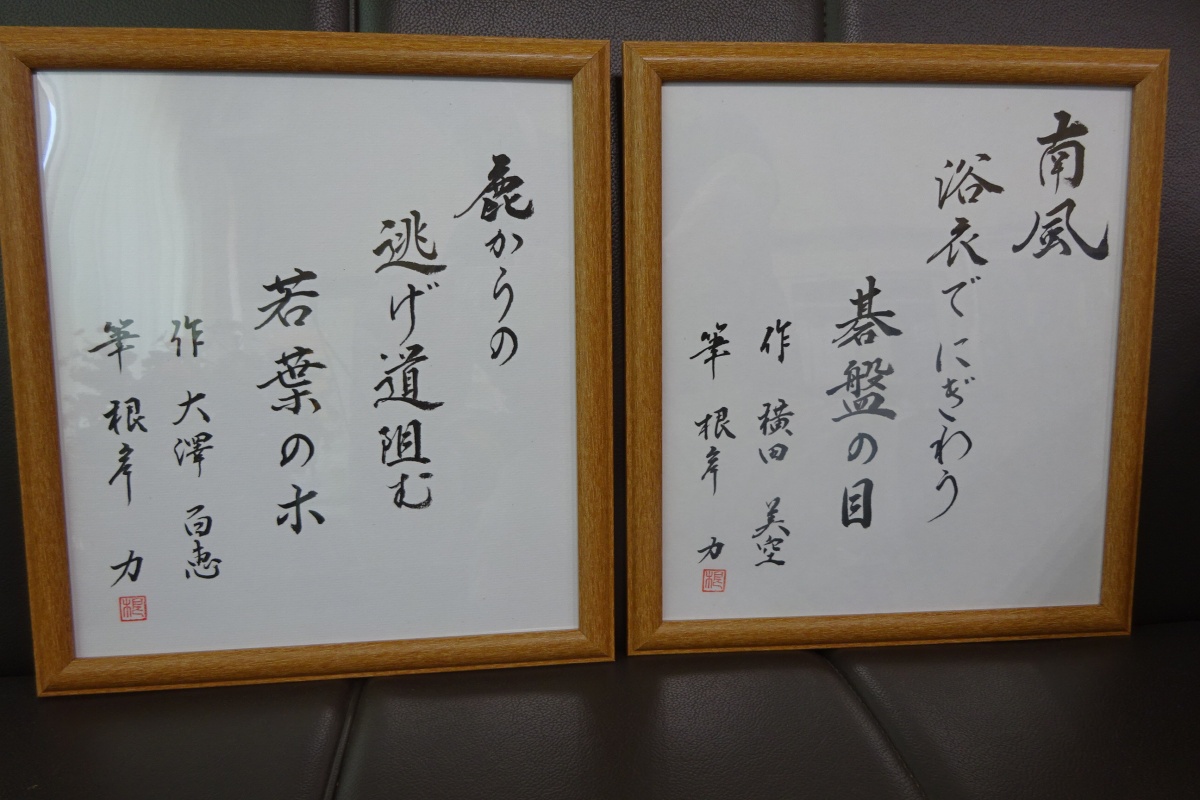 南風
浴衣でにぎわう
碁盤の目
作 横田 美空
筆 根岸 力
根
鹿からの
逃げ道阻む
若葉の木
作 大澤 百恵
筆 根岸 力
根